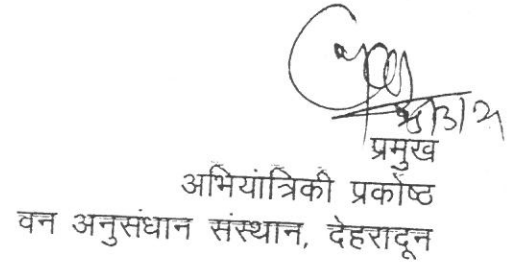 प्रमुख
अभियांत्रिकी प्रकोष्ठ
वन अनुसंधान संस्थान, देहरादून